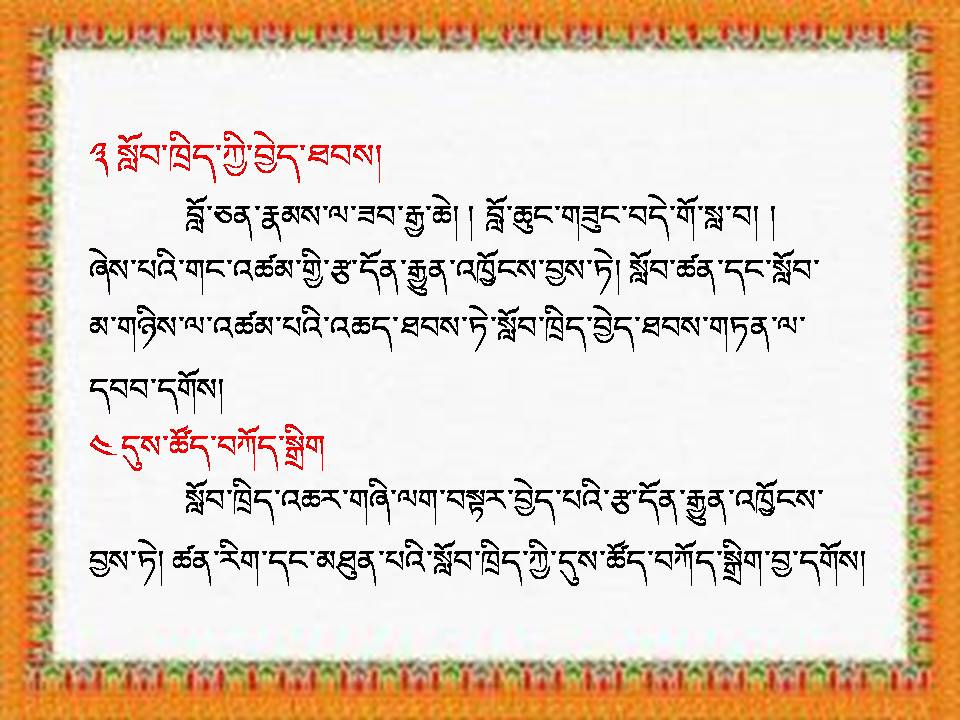 ༣ སློབ་ཁྲིད་ཀྱི་བྱེད་ཐབས།
བློ་ཅན་རྣམས་ལ་ཟབ་རྒྱ་ཆེ། ། བློ་ཆུང་གཟུང་བདེ་གོ་སླ་བ། །
ཞེས་པའི་གང་འཚམ་གྱི་རྩ་དོན་རྒྱུན་འཁྱོངས་བྱས་ཏེ། སློབ་ཚན་དང་སློབ་
མ་གཉིས་ལ་འཚམ་པའི་འཆད་ཐབས་ཏེ་སློབ་ཁྲིད་བྱེད་ཐབས་གཏན་ལ་
དབབ་དགོས།
༤ དུས་ཚོད་བཀོད་སྒྲིག
སློབ་ཁྲིད་འཆར་གཞི་ལག་བསྟར་བྱེད་པའི་རྩ་དོན་རྒྱུན་འཁྱོངས་
བྱས་ཏེ། ཚན་རིག་དང་མཐུན་པའི་སློབ་ཁྲིད་ཀྱི་དུས་ཚོད་བཀོད་སྒྲིག་བྱ་དགོས།